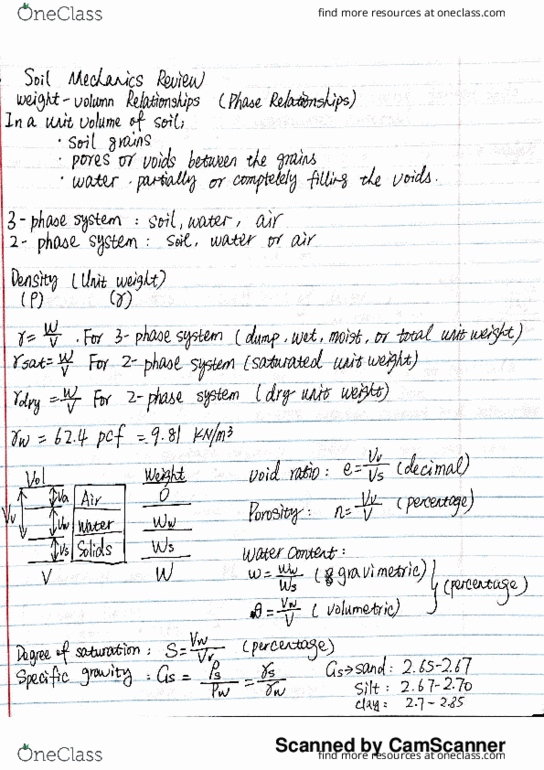 OneClass
find more resources at oneclass.com
Soil Mechanics Review
weight-volumn Relationships (Phase Relationships)
In a unit volume of soil;
· soil grains
· pores or voids between the grains
· water partially or completely filling the voids.
3-phase system : soil, water, air
2-phase system : soil, water or air
Density (Unit weight)
(ρ) (γ)
γ = W/V . For 3-phase system (dump, wet, moist, or total unit weight)
γsat = W/V For 2-phase system (saturated unit weight)
γdry = W/V For 2-phase system (dry unit weight)
γw = 62.4 pcf = 9.81 KN/m³
Vol Weight
Va Air 0
Vv Vw Water Ww
Vs Solids Ws
V W
void ratio : e = Vv/Vs (decimal)
Porosity : n = Vv/V (percentage)
Water Content :
w = Ww/Ws (gravimetric)
θ = Vw/V (volumetric)
(percentage)
Degree of saturation : S = Vw/Vv (percentage)
Specific gravity : Gs = ρs/ρw = γs/γw
Gs → sand : 2.65-2.67
silt : 2.67-2.70
clay : 2.7-2.85
Scanned by CamScanner
OneClass
find more resources at oneclass.com